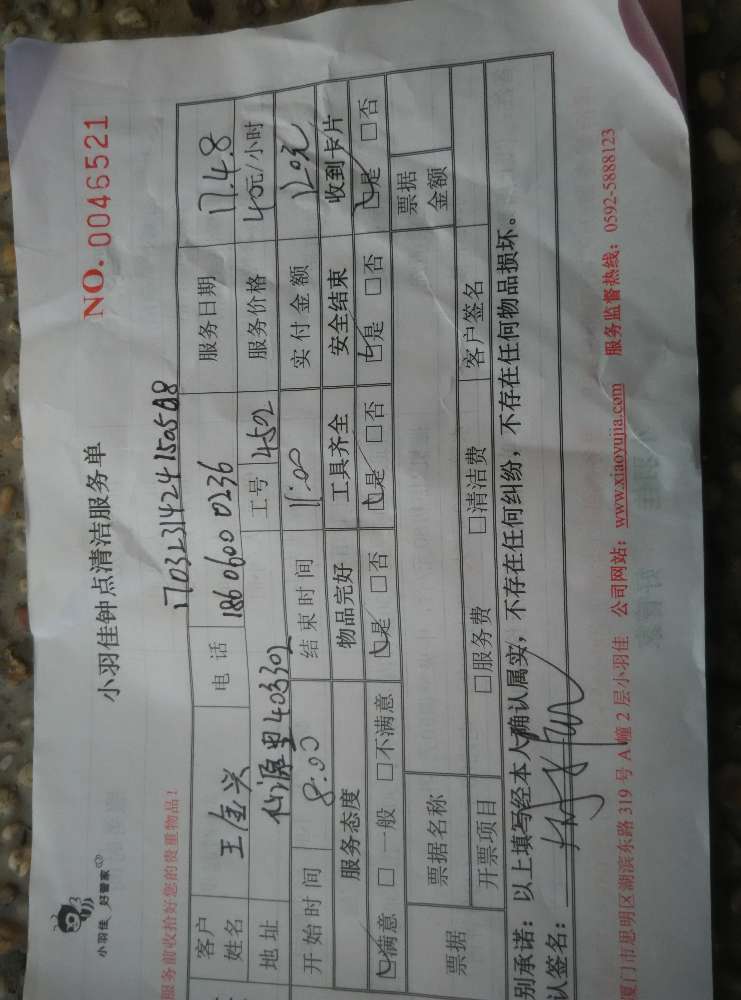 小羽佳 好管家
小羽佳钟点清洁服务单
NO. 0046521
服务前收拾好您的贵重物品!
1703231424150508
客户姓名 王金兴 电话 18606000236 服务日期 17.4.8
地址 仙源里403302 工号 4502 服务价格 40元/小时
开始时间 8:00 结束时间 11:00 实付金额 120元
服务态度 物品完好 工具齐全 安全结束 收到卡片
☑满意 □一般 □不满意 ☑是 □否 ☑是 □否 ☑是 □否 ☑是 □否
票据 票据名称 票据金额
开票项目 □服务费 □清洁费 客户签名
别承诺:以上填写经本人确认属实,不存在任何纠纷,不存在任何物品损坏。
认签名:
厦门市思明区湖滨东路 319 号 A 幢 2 层小羽佳 公司网站:www.xiaoyujia.com 服务监督热线:0592-5888123